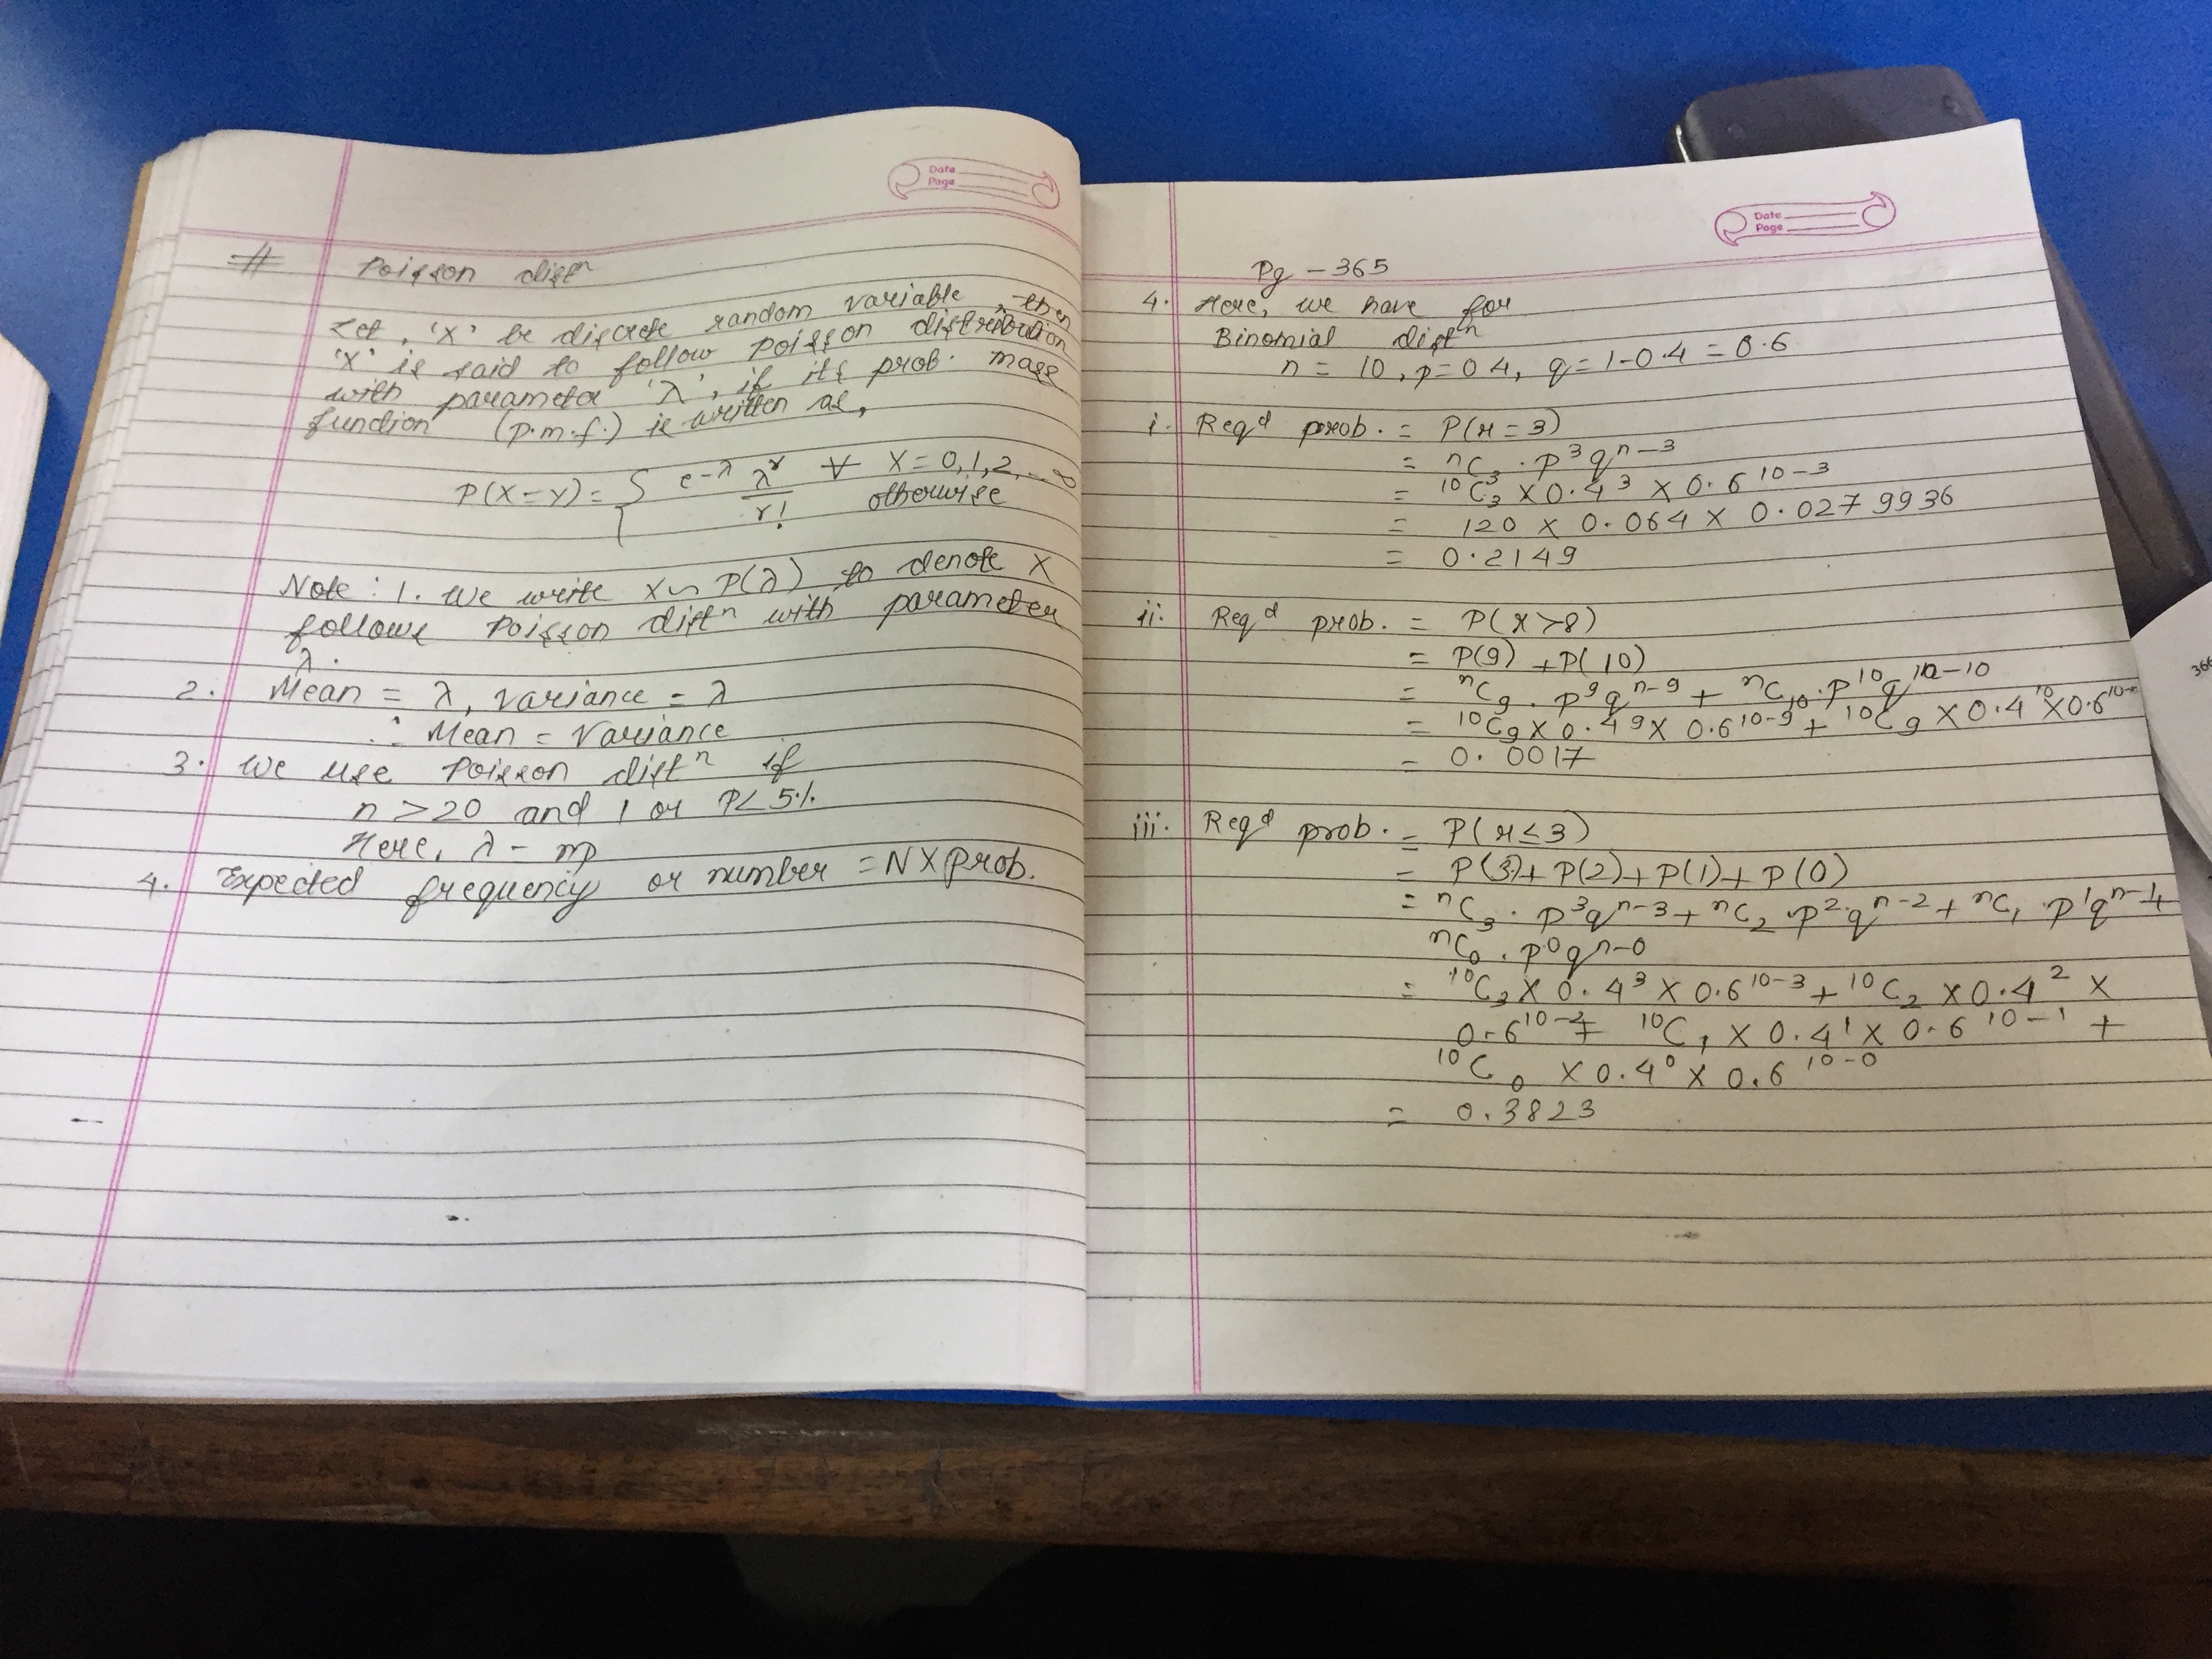 Date
Page
# Poisson distn
Let, 'X' be discrete random variable, then
'X' is said to follow poisson distribution
with parameter 'λ', if its prob. mass
function (p.m.f.) is written as,
P(X=r) = { e-λ λr ∀ X=0,1,2,--∞
r! otherwise
Note: 1. We write X~P(λ) to denote X
follows Poisson distn with parameter
λ.
2. Mean = λ, variance = λ
∴ Mean = Variance
3. We use Poisson distn if
n>20 and 1 or P<5%
Here, λ- mp
4. Expected frequency or number = N X prob.
Date
Page
Pg - 365
4. Here, we have for
Binomial distn
n = 10, p=0.4, q=1-0.4=0.6
i. Reqd prob. = P(x=3)
= nC3 . p3qn-3
= 10C3 X0.43 X 0.6 10-3
= 120 X 0.064 X 0.0279936
= 0.2149
ii. Reqd prob. = P(X>8)
= P(9) + P(10)
= nC9 . p9qn-9 + nC10.p10q10-10
= 10C9X0.49X 0.610-9+ 10C9 X0.410X0.610-
= 0.0017
iii. Reqd prob. = P(x≤3)
= P(3)+P(2)+P(1)+P(0)
= nC3 . p3qn-3+nC2.p2.qn-2+nC1 p1qn-1
nC0.p0qn-0
= 10C3X0.43X0.610-3+10C2X0.42X
0.610-2+ 10C1 X0.41X0.610-1+
10C0 X0.40X0.610-0
= 0.3823
366